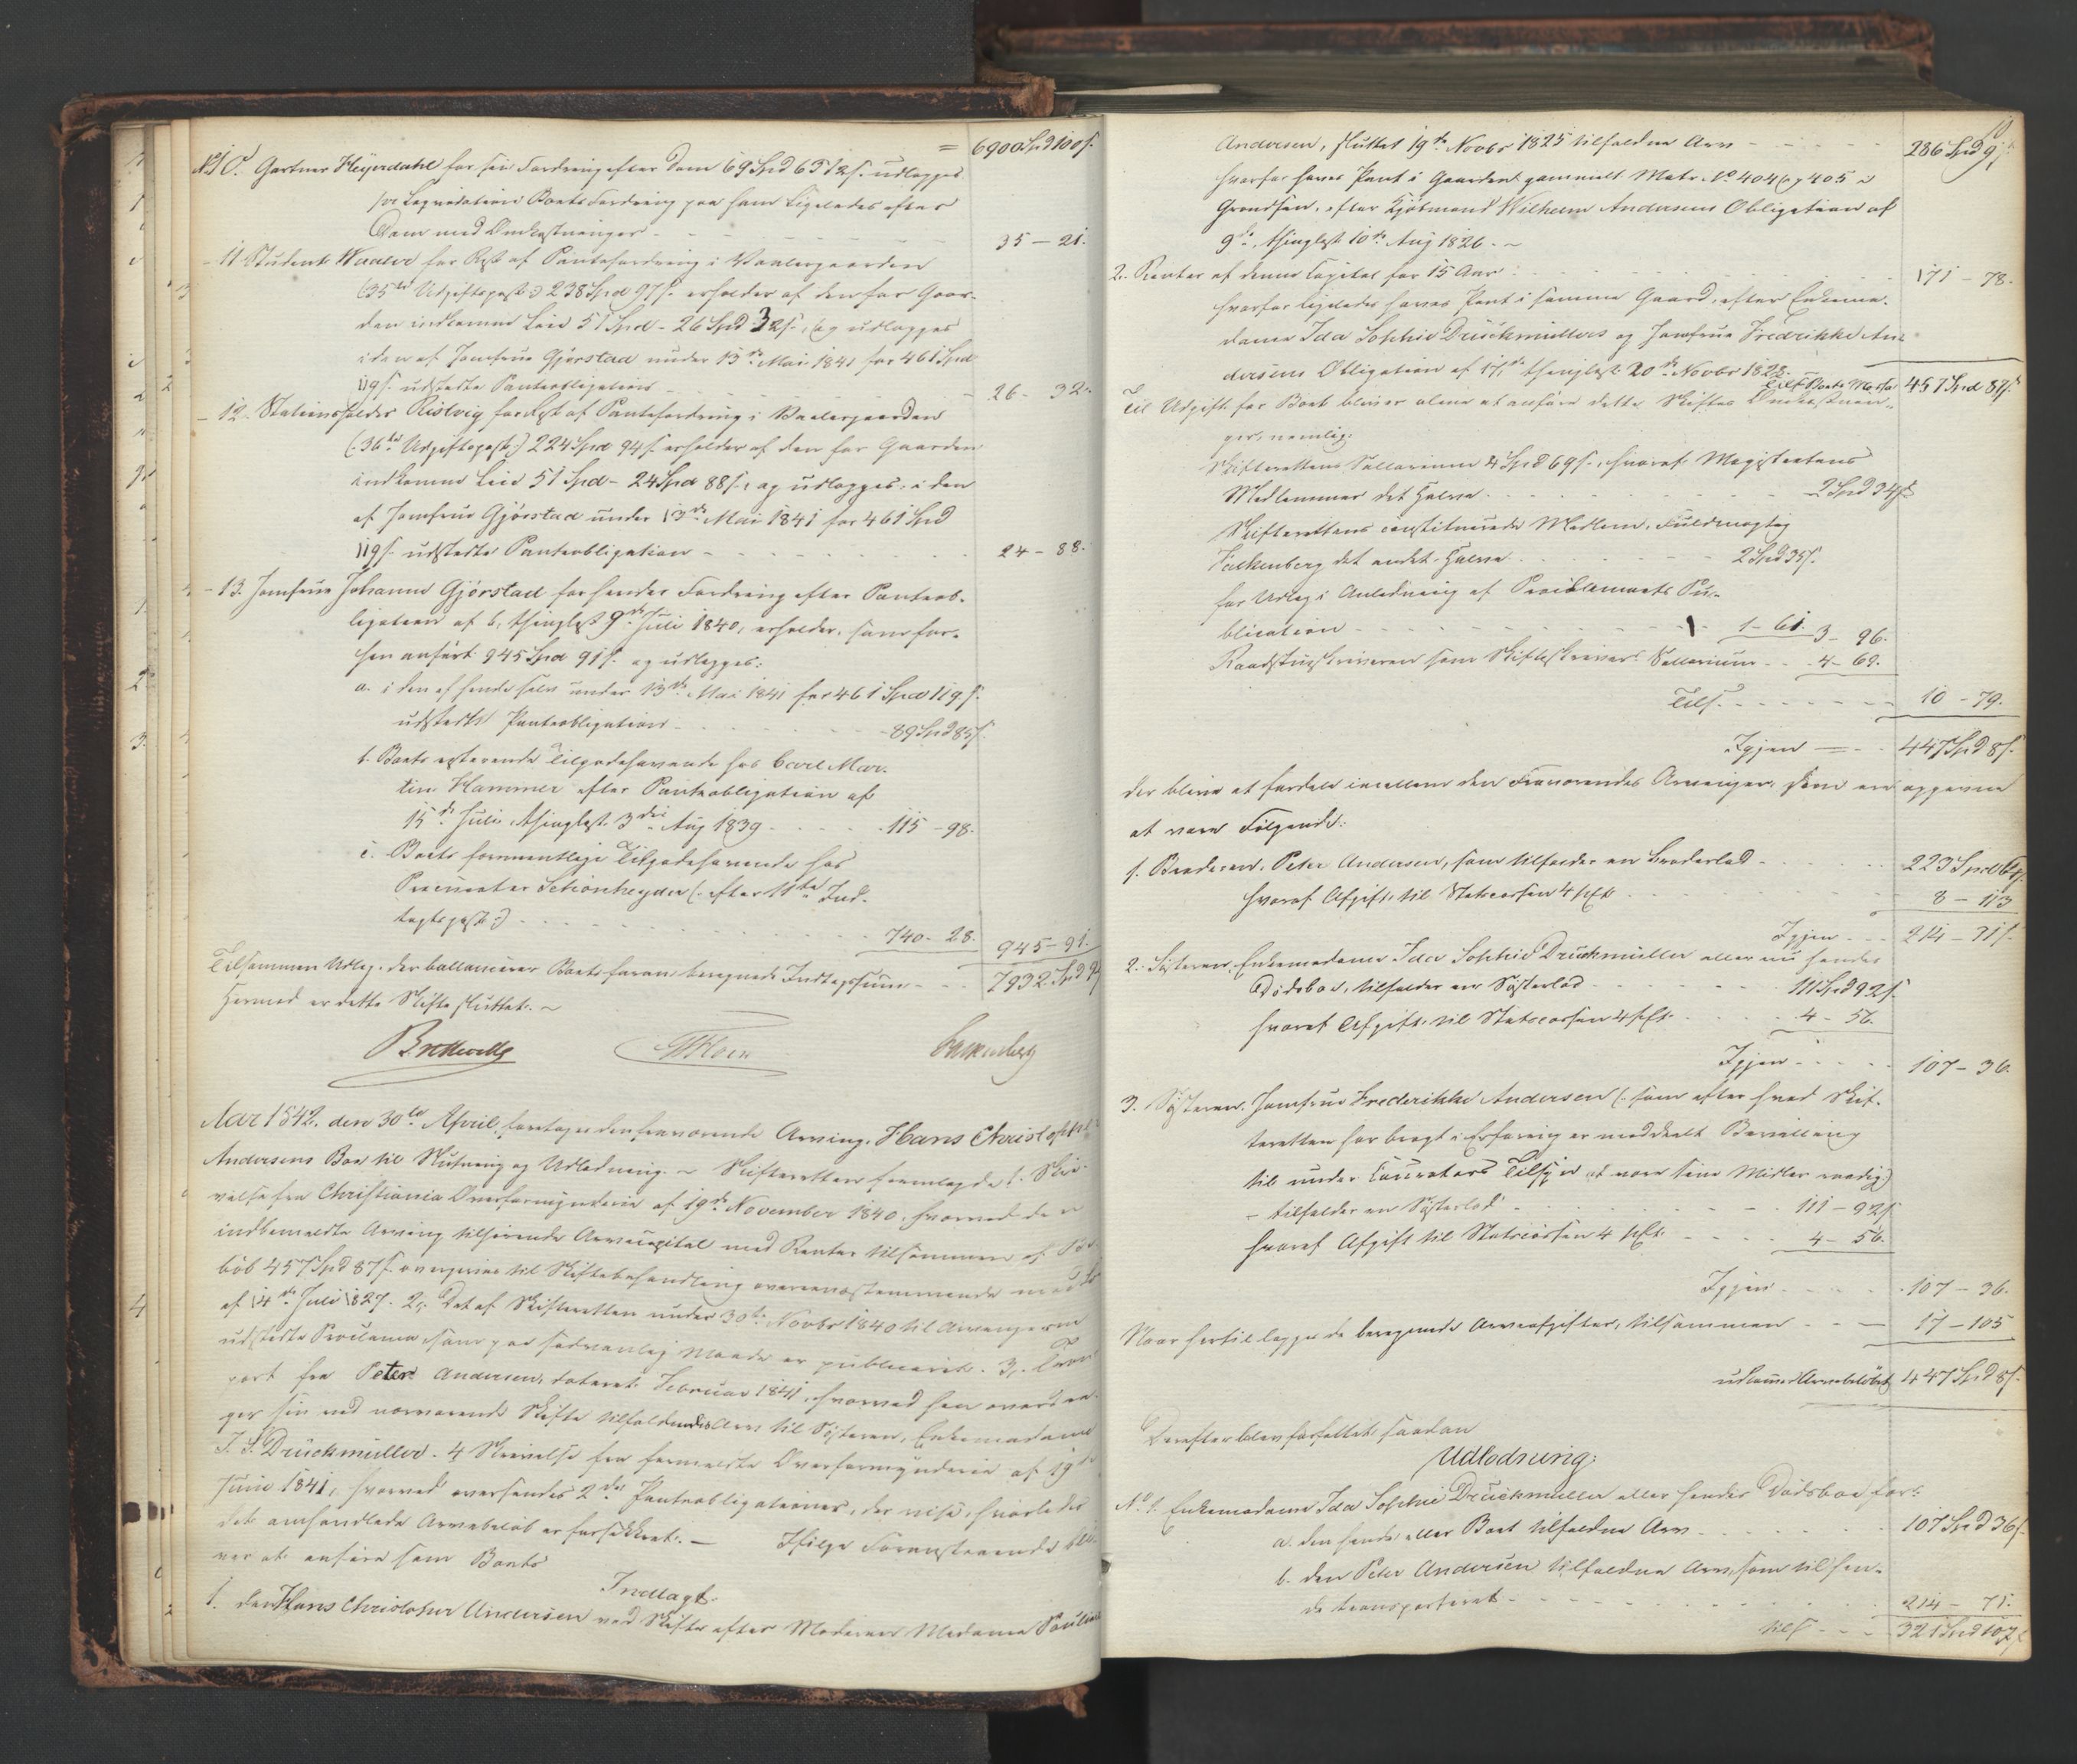 = 6900 Spd 100 s.
No 10. Gartner Heyerdahl for sin Fordring efter Dom 69 Spd 65 1/2 s. udlægges
for Liqvidation Boets Fordring paa ham ligeledes efter
Dom med Omkostninger - - - 35 - 21.
- 11 Student Waaler for Rest af Pantefordring i Waalergaarden
(35te Udgiftspost:) 238 Spd 97 s. erholder af den for Gaar-
den indkomne Leie 51 Spd - 26 Spd 32 s., og udlægges
i den af Jomfrue Gjørstad under 13de Mai 1841 for 461 Spd
119 s. udstedte Panteobligation - - - 26 - 32.
- 12. Stationsholder Ristvig for Rest af Pantefordring i Waalergaarden
(:36te Udgiftspost:) 224 Spd 94 s. erholder af den for Gaarden
indkomne Leie 51 Spd - 24 Spd 88 s., og udlægges i den
af Jomfrue Gjørstad under 13de Mai 1841 for 461 Spd
119 s. udstedte Panteobligation - - - 24 - 88.
- 13. Jomfrue Johanne Gjørstad for hendes Fordring efter Panteob-
ligation af 6, thinglæst 9de Juli 1840, erholder, som for-
hen anført 945 Spd 91 s. og udlægges:
a. i den af hende selv under 13de Mai 1841 for 461 Spd 119 s.
udstedte Panteobligation - - - 89 Spd 85 s.
b. Boets Tilgodehavende hos Carl Mar-
tin Hammer efter Panteobligation af
15de Juli, thinglæst 3die Aug 1839 - - - 115 - 98.
c. Boets formentlige Tilgodehavende hos
Procurator Schiønheyder (: efter 11te Ind-
tægtspost:) - - - 740 - 28. 945 - 91.
Tilsammen Udlæg, der ballancerer Boets foran beregnede Indtægtssum - - - 7932 Spd
Hermed er dette Skifte sluttet. ~
Aar 1842. den 30te April, foretoges den fraværende Arving, Hans Christopher
Andersens Boe til Slutning og Udlodning. ~ Skifteretten fremlagde 1. Skri-
velse fra Christiania Overformynderie af 19de November 1840, hvorved den
indbemeldte Arving tilhørende Arvecapital med Renter tilsammen af Be-
løb 457 Spd 87 s. overgives til Skiftebehandling overeensstemmende med
af 14de Juli 1827. 2, Det af Skifteretten under 30te Novbr 1840 til Arvingerne
udstedte Proclama, som paa sædvanlig Maade er publiceret. 3, Trans-
port fra Peter Andersen, dateret Februar 1841, hvorved han overdra-
ger sin ved nærværende Skifte tilfaldende Arv til Søsteren, Enkemadame
I. S. Drückmüller. 4 Skrivelse fra formeldte Overformynderie af 19de
Junii 1841, hvorved oversendes 2de Panteobligationer, der vise, hvorledes
det omhandlede Arvebeløb er forsikkret. — Ifølge Foranstaaende bli-
ver at anføre som Boets
Indtægt.
1. den Hans Christopher Andersen ved Skifte efter Moderen Madame Pauline
Andersen, sluttet 19de Novbr 1825 tilfaldne Arv - - - 286 Spd 9 s.
hvorfor haves Pant i Gaarden gammelt Matr. No 404 og 405 i
Grændsen, efter Kjøbmand Wilhelm Andersens Obligation af
9de, thinglæst 10de Aug 1826. ~
2. Renter af denne Capital for 15 Aar - - - 171 - 78.
hvorfor ligeledes haves Pant i samme Gaard, efter Enkema-
dame Ida Sophie Drückmüllers og Jomfrue Fredrikke An-
dersens Obligation af 17de, thinglæst 20de Novbr 1828.
Tils. Boets Masse 457 Spd 87 s.
Til Udgift for Boet bliver alene at anføre dette Skiftes Omkostnin-
ger, nemlig:
Skifterettens Sallarium 4 Spd 69 s., hvoraf Magistratens
Medlemmer det Halve - - - 2 Spd 34 s.
Skifterettens constituerede Medlem, Fuldmægtig
Falkenberg det andet Halve - - - 2 Spd 35 s.
for Udlæg i Anledning af Proclamaets Pu-
blication - - - 1 - 61. 3 - 96.
Raadstueskriveren som Skifteskriver Sallarium - - 4 - 69.
Tils. - - - 10 - 79.
Igjen - - - 447 Spd 8 s.
der bliver at fordele imellem den Fraværendes Arvinger, som ere opgivne
at være Følgende:
1. Broderen, Peter Andersen, som tilfalder en Broderlod - - - 223 Spd 64 s.
hvoraf Afgift til Statscassen 4 pCt. - - - 8 - 113
Igjen - - - 214 - 71 s.
2. Søsteren, Enkemadame Ida Sophie Drückmüller eller nu hendes
Dødsboe, tilfalder en Søsterlod - - - 111 Spd 92 s.
hvoraf Afgift til Statscassen 4 pCt. - - - 4 - 56.
Igjen - - - 107 - 36.
3. Søsteren, Jomfrue Frederikke Andersen (: som efter hvad Skif-
teretten har bragt i Erfaring er meddeelt Bevilling
til under Curators Tilsyn at være sine Midler raadig:)
- tilfalder en Søsterlod - - - 111 - 92 s.
hvoraf Afgift til Statscassen 4 pCt. - - - 4 - 56.
Igjen - - - 107 - 36.
Naar hertil lægges de beregnede Arveafgifter, tilsammen - - - 17 - 105
udkommer Arvebeløbet 447 Spd 8 s.
Derefter blev forfattet saadan
Udlodning:
No 1. Enkemadame Ida Sophie Drückmüller eller hendes Dødsboe for:
a. den hende eller Boet tilfaldne Arv - - - 107 Spd 36 s.
b. den Peter Andersen tilfaldne Arv, som til hen-
de transporteret - - - 214 - 71.
tils. - - - 321 Spd 107 s.